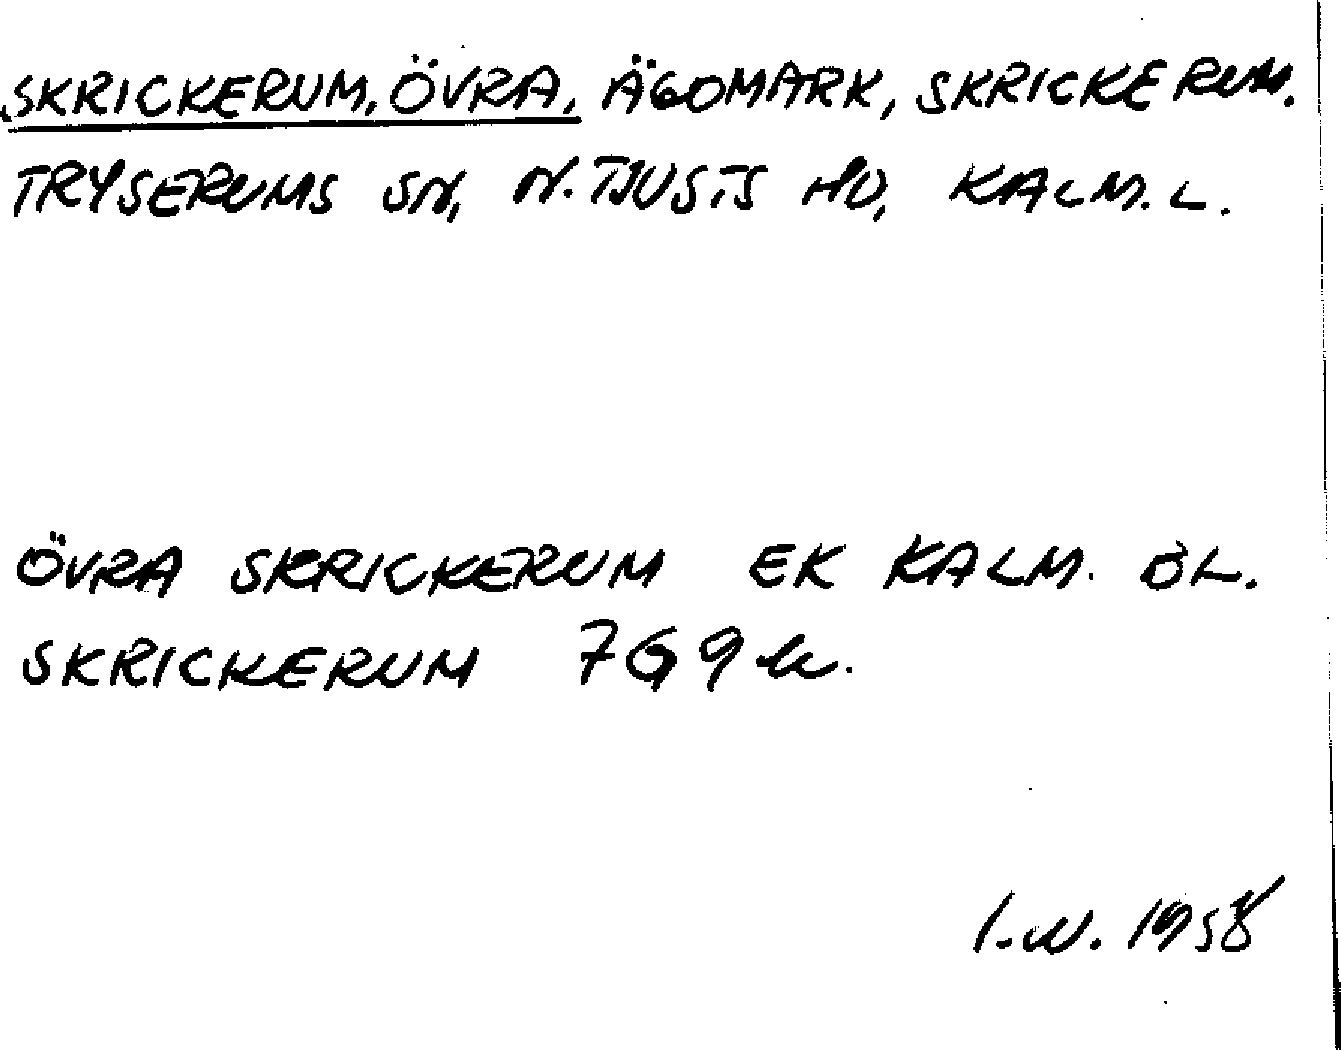 SKRICKERUM, ÖVRA, ÄGOMARK, SKRICKERUM.
TRYSERUMS SN, N. TJUSTS HD, KALM. L.
ÖVRA SKRICKERUM EK KALM. ÖL.
SKRICKERUM 7G9h.
I.N. 1958